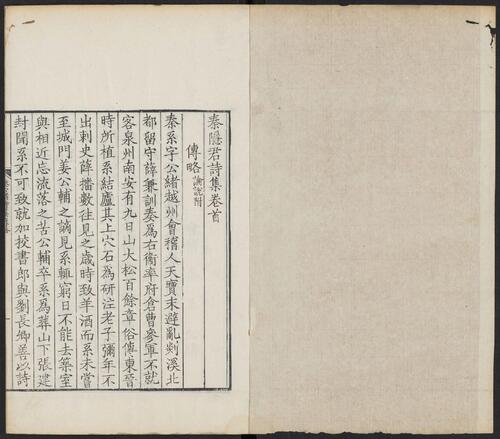 秦隱君詩集卷首
傳略論說附
秦系字公緒越州會稽人天寶末避亂剡溪北
都留守薛兼訓奏爲右衛率府倉曹參軍不就
客泉州南安有九日山大松百餘章俗傳東晉
時所植系結廬其上穴石爲研注老子彌年不
出刺史薛播數往見之歲時致羊酒而系未嘗
至城門姜公輔之謫見系輒窮日不能去築室
與相近忘流落之苦公輔卒系爲葬山下張建
封聞系不可致就加挍書郎與劉長卿善以詩